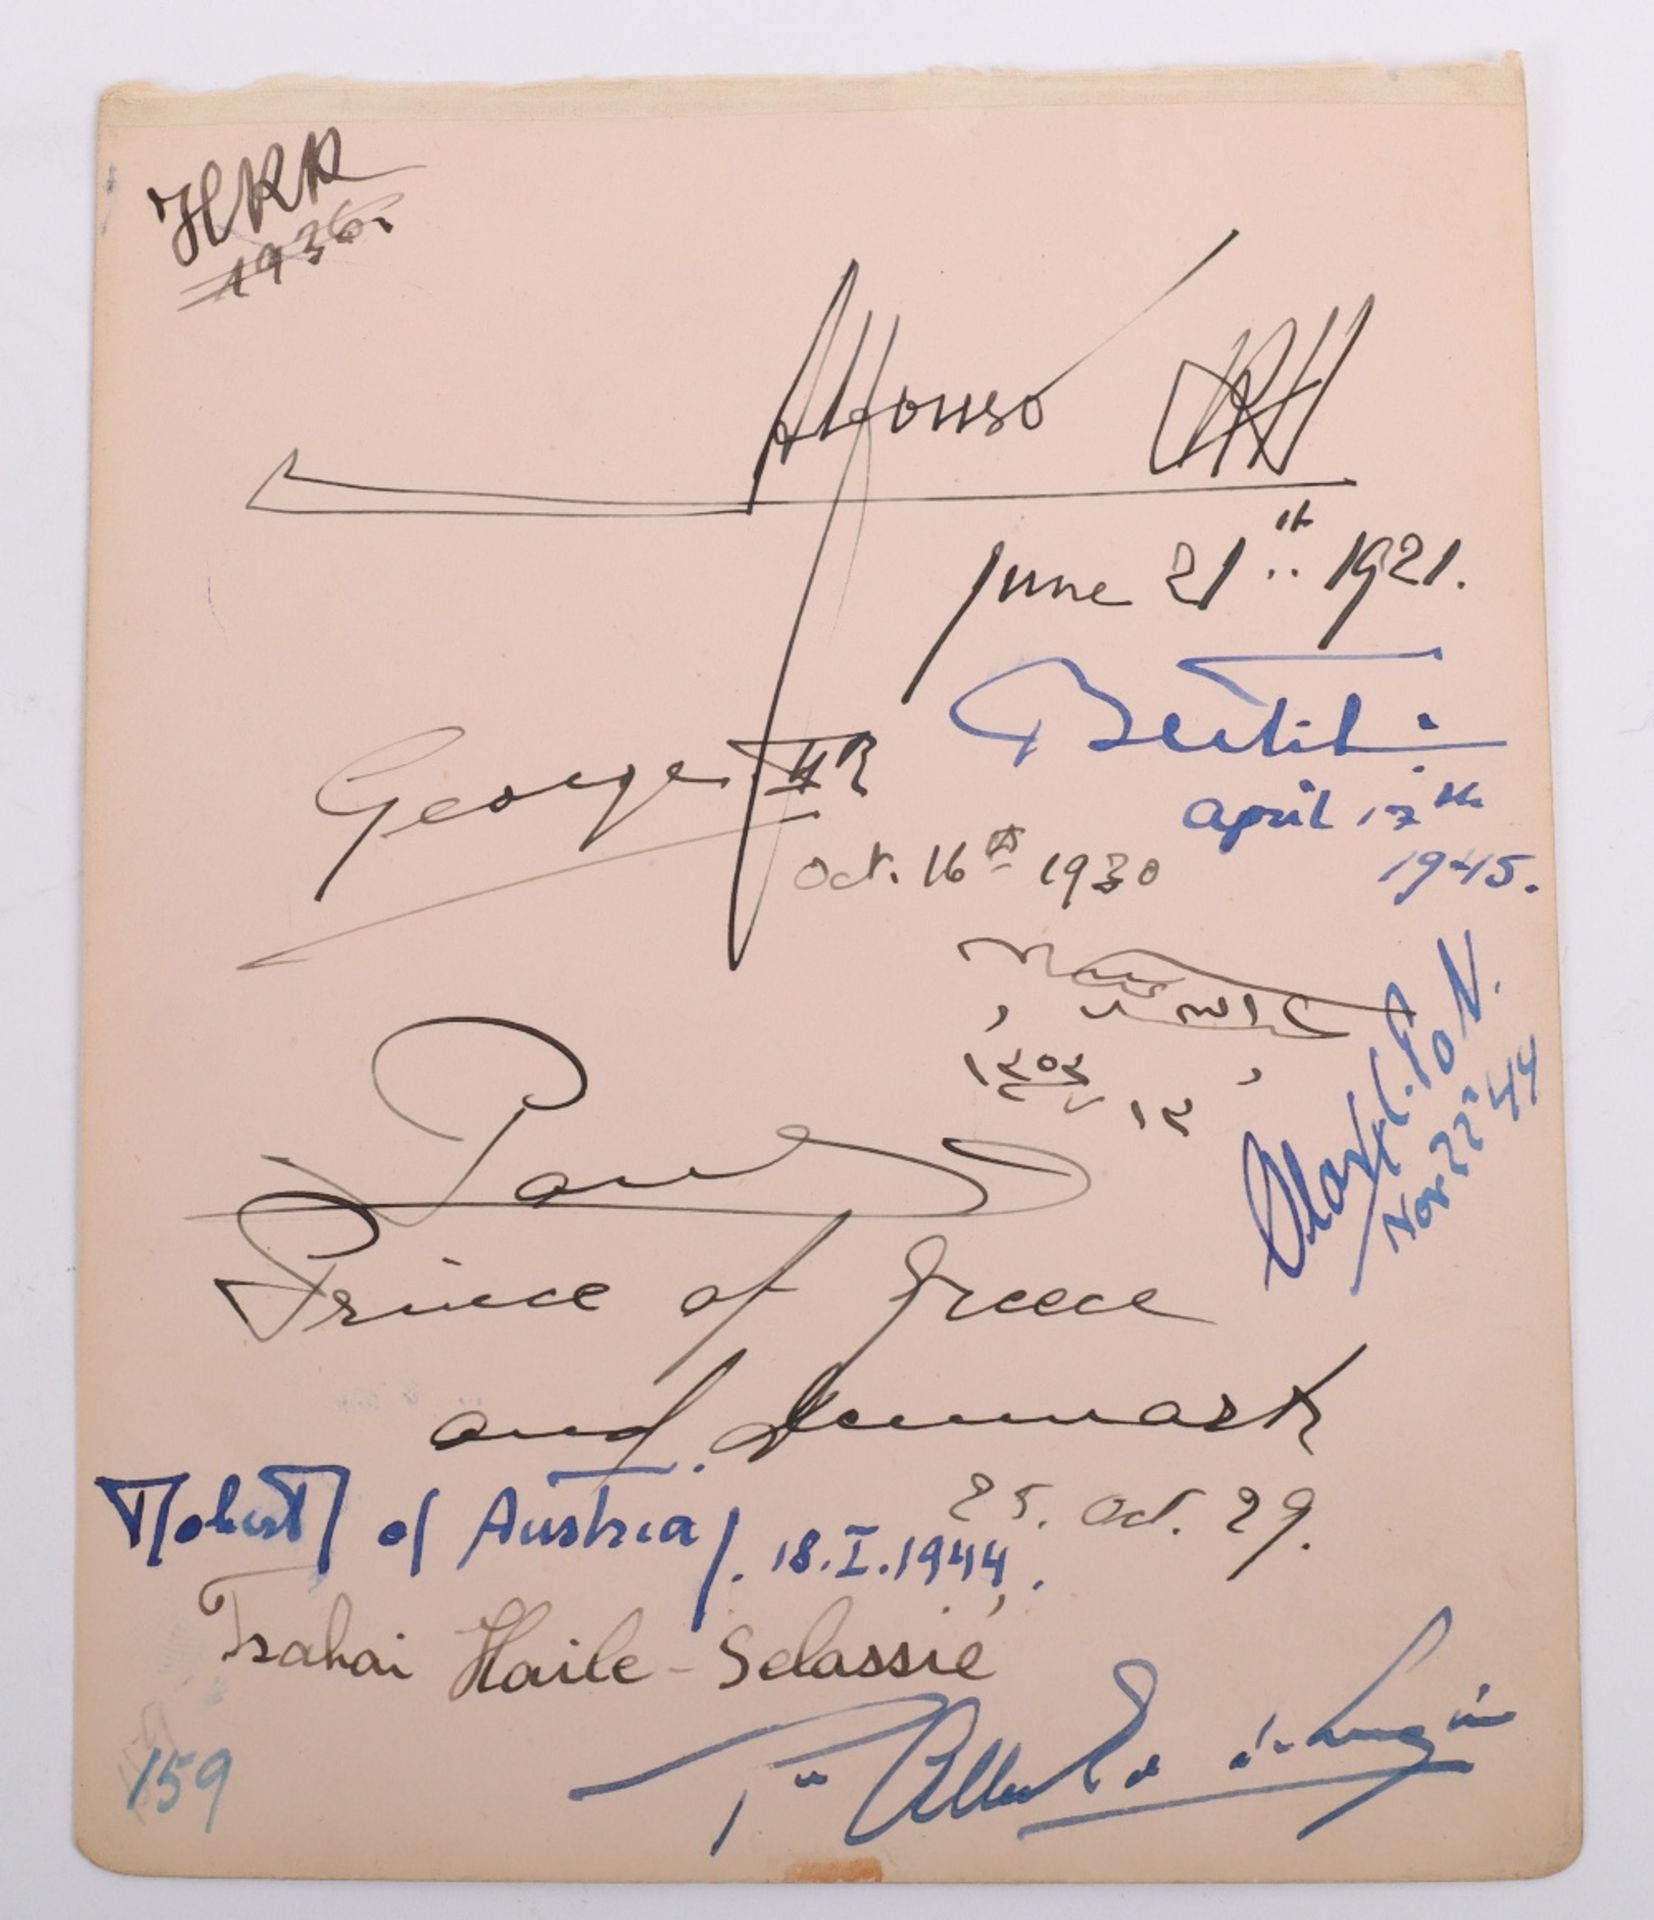 HRR
1936.
Alfonso RH
June 21st.. 1921.
Bertil
April 17th
1945.
George II R
Oct. 16th 1930
Olav. C. P. o N.
Nov 22' 44
١٣٥٣
١٢
Paul
Prince of Greece
and Denmark
25. Oct. 29.
Robert of Austria/. 18.I.1944.
Tsahai Haile-Selassié
159